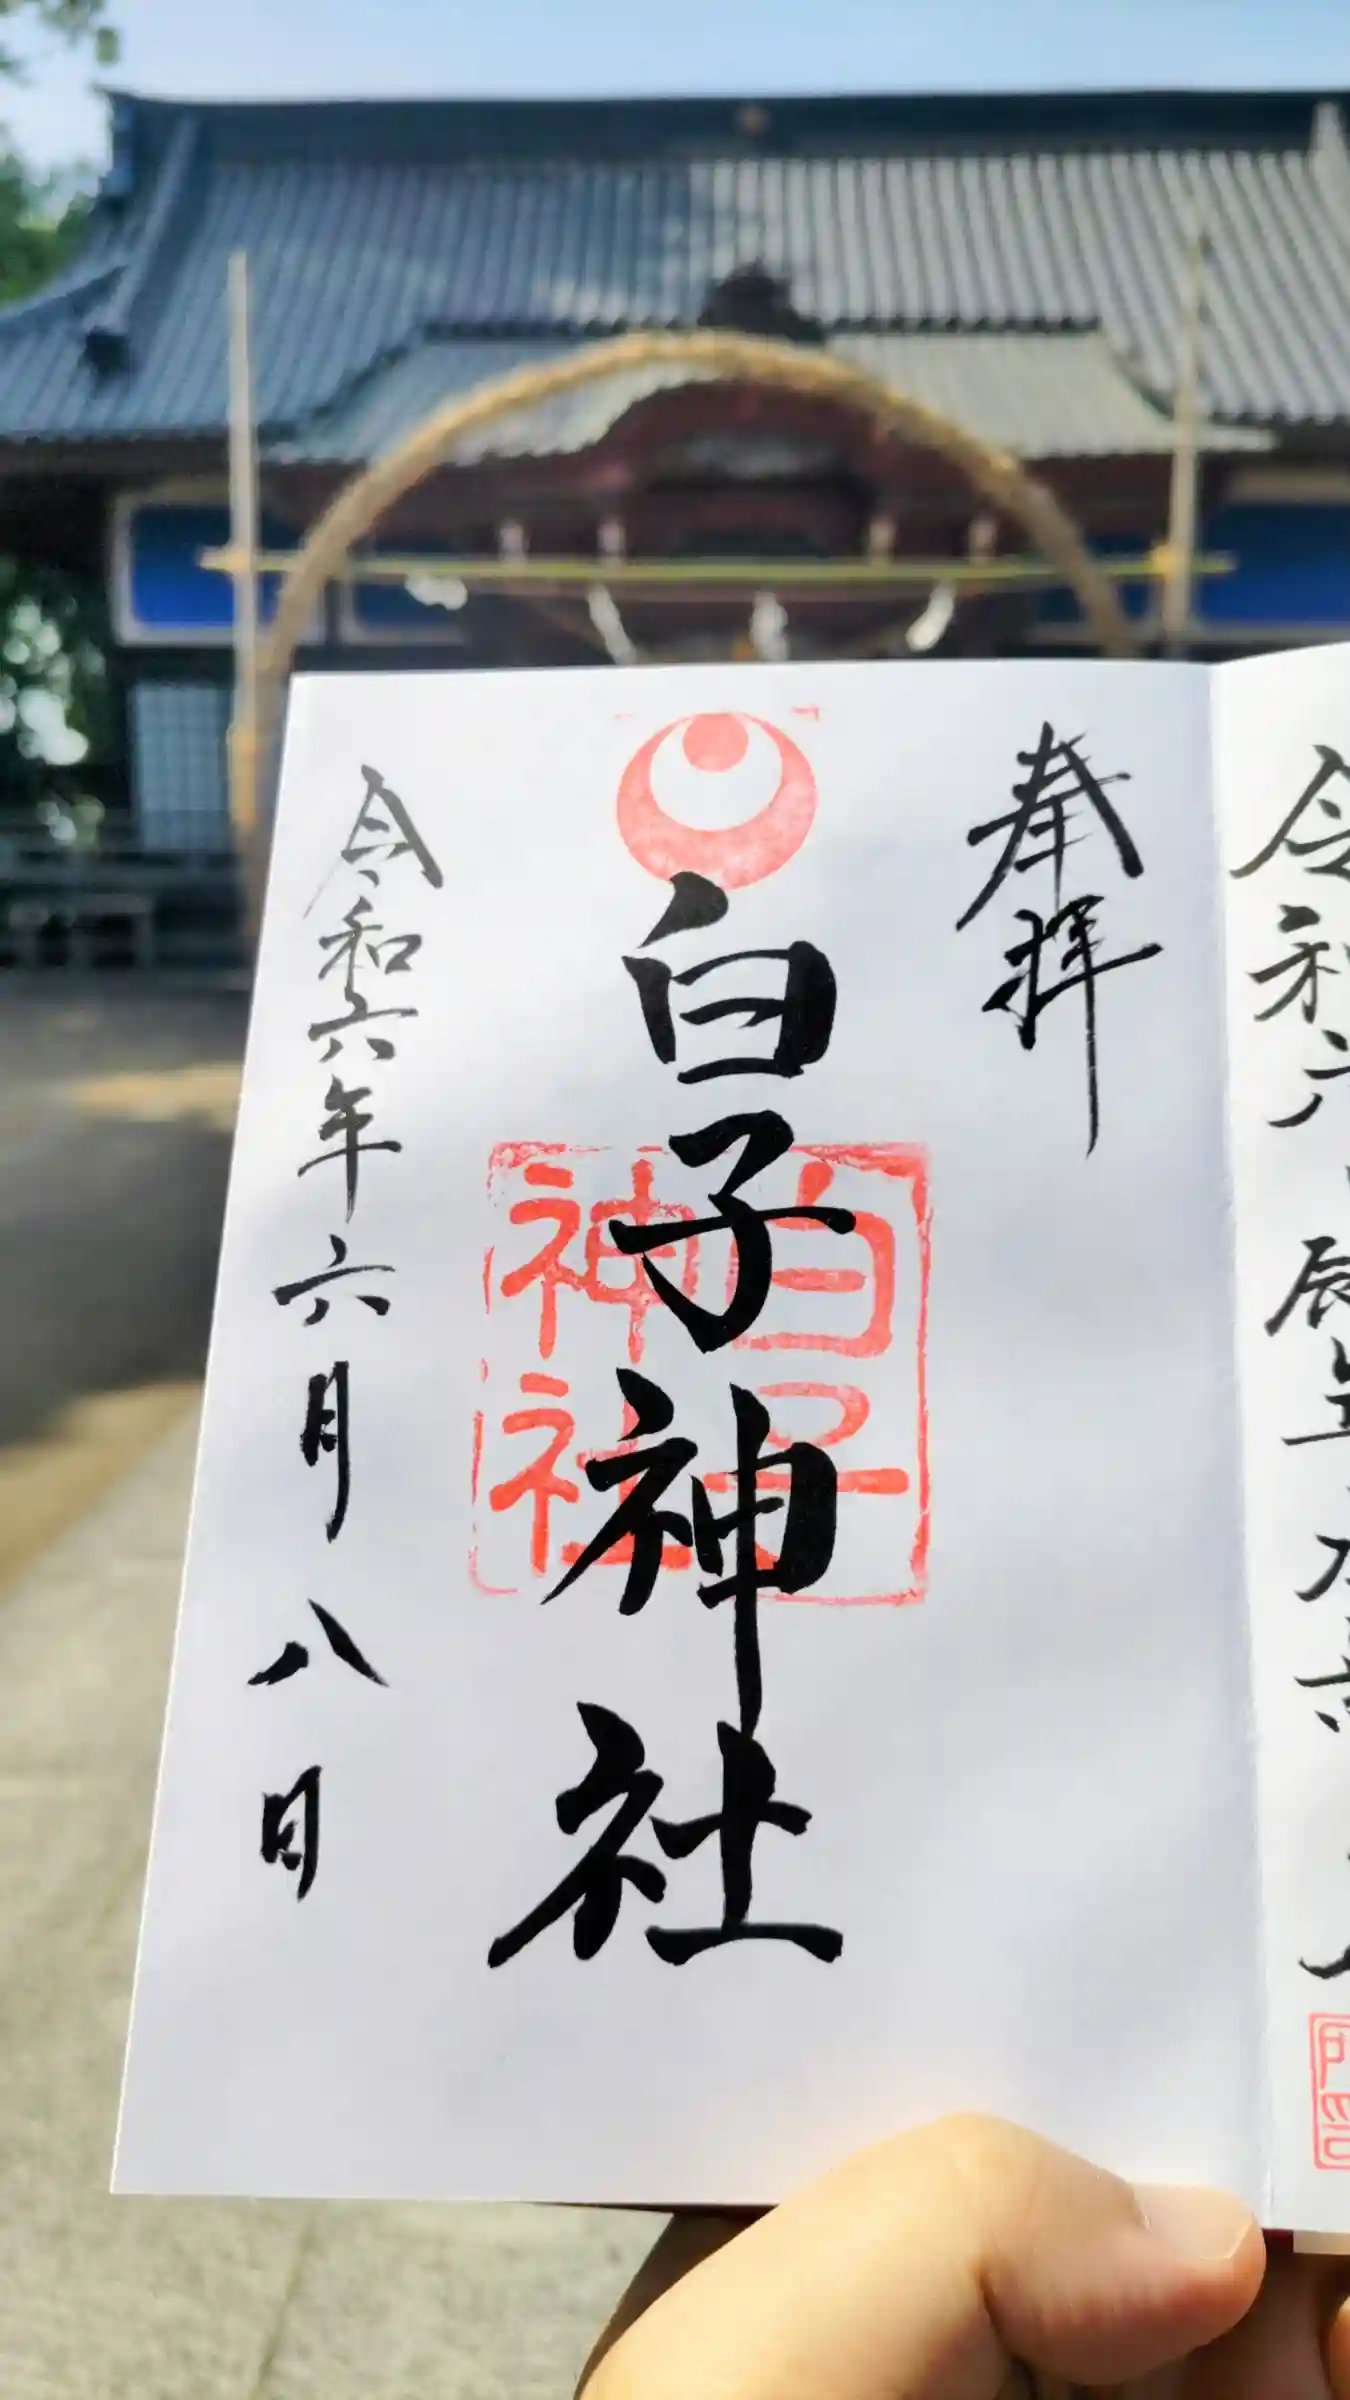 令和六
辰年
奉拝
白子神社
白子
神社
令和六年六月八日